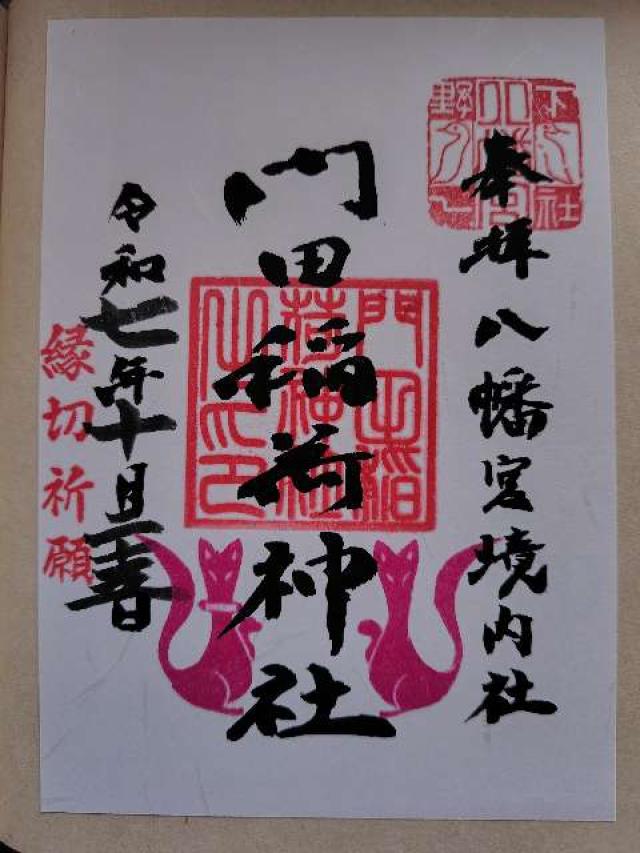 奉拝 八幡宮境内社
下野一社
八幡宮
門田稲荷神社
門田稲荷神社之印
令和七年十月
縁切祈願